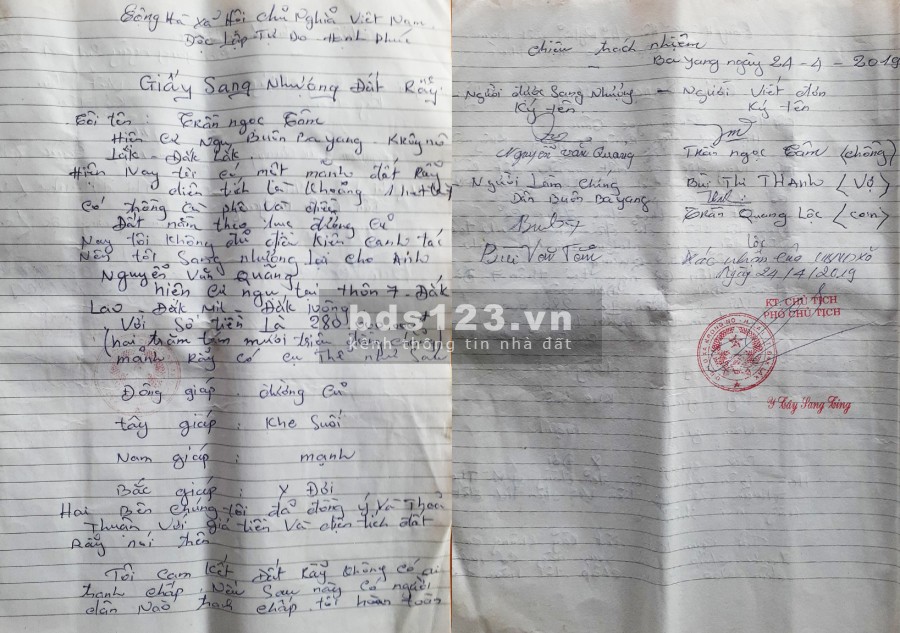 Công Hà Xã Hôi chủ Nghĩa Việt Nam
Độc Lập Tự Do Hạnh Phúc
Giấy Sang Nhượng Đất Rẫy
Tôi tên : Trần ngọc Tâm
Hiện cư Ngụ Buôn Bayang Krông nô
Lắk - Đắk Lắk
Hiện Nay tôi có một mảnh đất Rẫy
diện tích là khoảng 1
có trồng cà phê và điều
Đất nằm theo trục đường cũ
Nay tôi không đủ điều kiện canh tác
Nên tôi Sang nhượng lại cho Anh
Nguyễn Văn Quãng
hiện cư ngụ tại thôn 7 - Đắk
Lao - Đắk Mil - Đắk nông
Với Số tiền Là 280
(hai trăm tám mươi triệu
mảnh Rẫy có cụ Thể như Sau
Đông giáp : đường Cũ
tây giáp : Khe Suối
Nam giáp : mạnh
Bắc giáp : Y Đới
Hai Bên chúng tôi đã đồng ý Và Thỏa
Thuận Với giá tiền Và diện tích đất
Rẫy nói trên
Tôi cam kết đất Rẫy không có ai
tranh chấp. Nếu Sau này có người
dân Nào tranh chấp tôi hoàn toàn
chiệu trách nhiệm
Ba yang ngày 24 - 4 - 2019
- Người được Sang Nhượng - Người Viết đơn
Ký tên Ký tên
Nguyễn văn Quang Trần ngọc Tâm (chồng)
Người Làm chứng Bùi Thị THAnh (Vợ)
Dân Buôn Bayang
Trần Quang Lộc (con)
Bùi Văn Tẩm Lộc
Xác nhận của UBNDXã
Ngày 24/4/2019
KT. CHỦ TỊCH
PHÓ CHỦ TỊCH
Y Tây Sang Ting
bds123.vn
kênh thông tin nhà đất